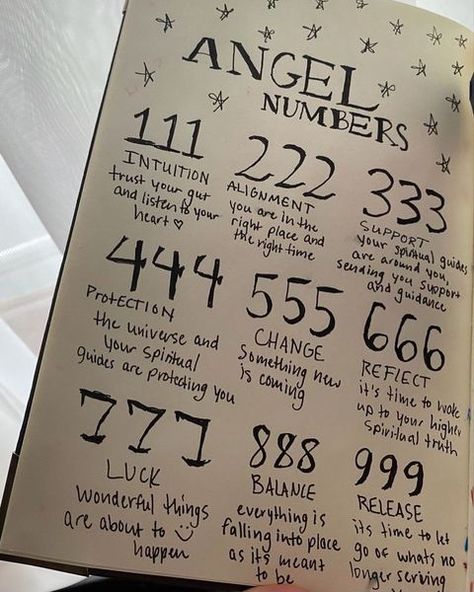 ANGEL
NUMBERS
111
INTUITION
trust your gut
and listen to your
heart ♡
222
ALIGNMENT
you are in the
right place and
the right time
333
SUPPORT
your spiritual guides
are around you,
sending you support
and guidance
444
PROTECTION
the universe and
your spiritual
guides are protecting you
555
CHANGE
something new
is coming
666
REFLECT
it's time to wake
up to your higher
spiritual truth
777
LUCK
wonderful things
are about to
happen
888
BALANCE
everything is
falling into place
as it's meant
to be
999
RELEASE
its time to let
go of whats no
longer serving